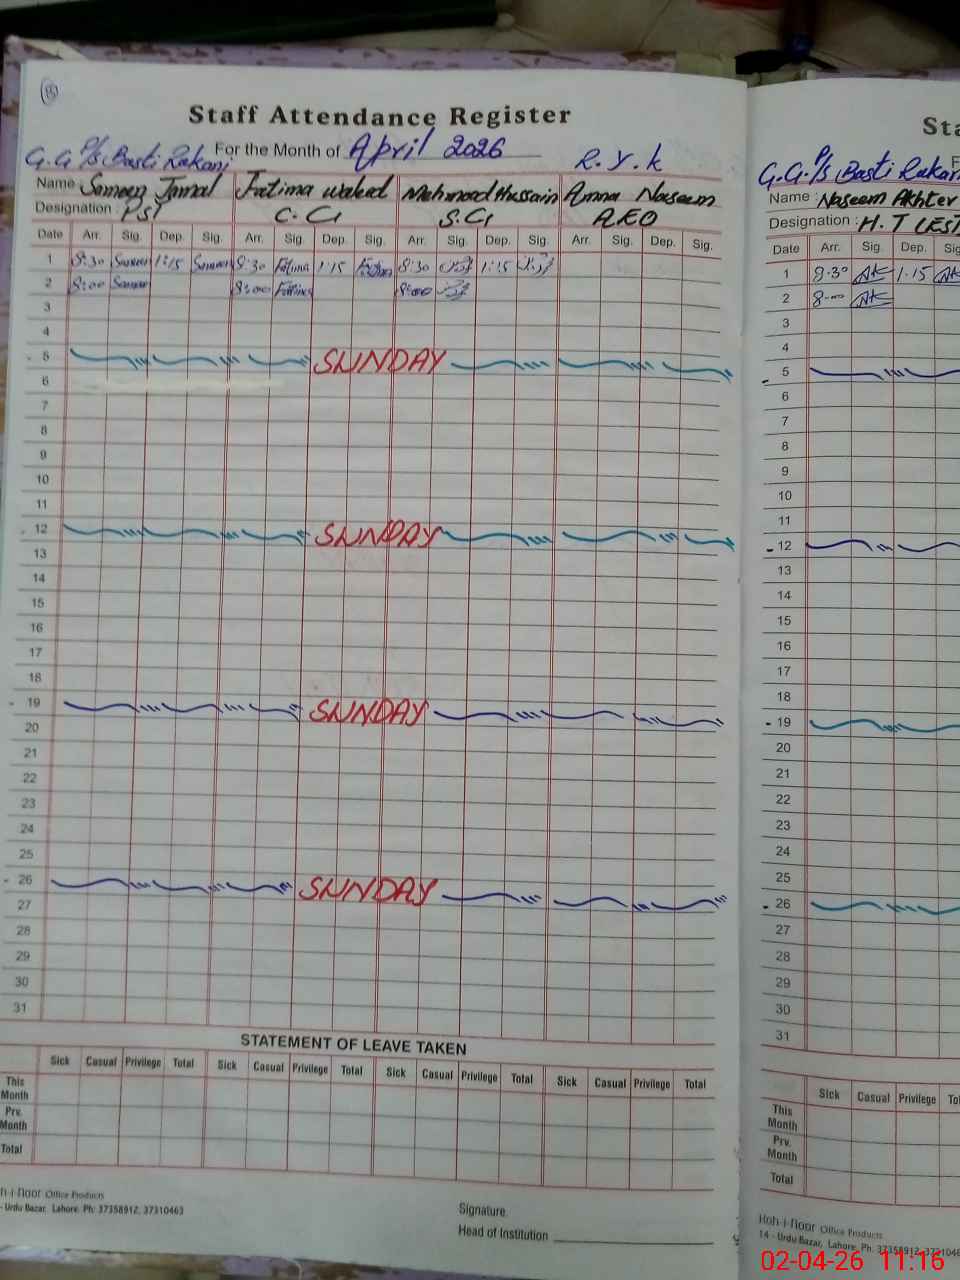 8
Staff Attendance Register
G.G.P/S Basti Rukani For the Month of April 2026 R.Y.K
Name Sameen Jamal Fatima waheed Mehmood Hussain Amna Naseem
Designation : PST C.G S.G AEO
Date Arr. Sig. Dep. Sig. Arr. Sig. Dep. Sig. Arr. Sig. Dep. Sig. Arr. Sig. Dep. Sig.
1 8:30 Sameen 1:15 Sameen 8:30 Fatima 1:15 Fatima 8:30 1:15
2 8:00 Sameen 8:00 Fatima 8:00
3
4
5 SUNDAY
6
7
8
9
10
11
12 SUNDAY
13
14
15
16
17
18
19 SUNDAY
20
21
22
23
24
25
26 SUNDAY
27
28
29
30
31
STATEMENT OF LEAVE TAKEN
Sick Casual Privilege Total Sick Casual Privilege Total Sick Casual Privilege Total Sick Casual Privilege Total
This Month
Prv. Month
Total
h-i-noor Office Products
- Urdu Bazar, Lahore. Ph: 37358912, 37310463
Signature
Head of Institution
Sta
G.G.P/S Basti Rukani
Name : Naseem Akhter
Designation : H.T (EST
Date Arr. Sig. Dep. Sig
1 8.30 1.15
2 8.00
3
4
5
6
7
8
9
10
11
12
13
14
15
16
17
18
19
20
21
22
23
24
25
26
27
28
29
30
31
Sick Casual Privilege To
This Month
Prv. Month
Total
Koh-i-noor Office Products
14 - Urdu Bazar, Lahore, Ph. 37358912, 3731046
02-04-26 11:16